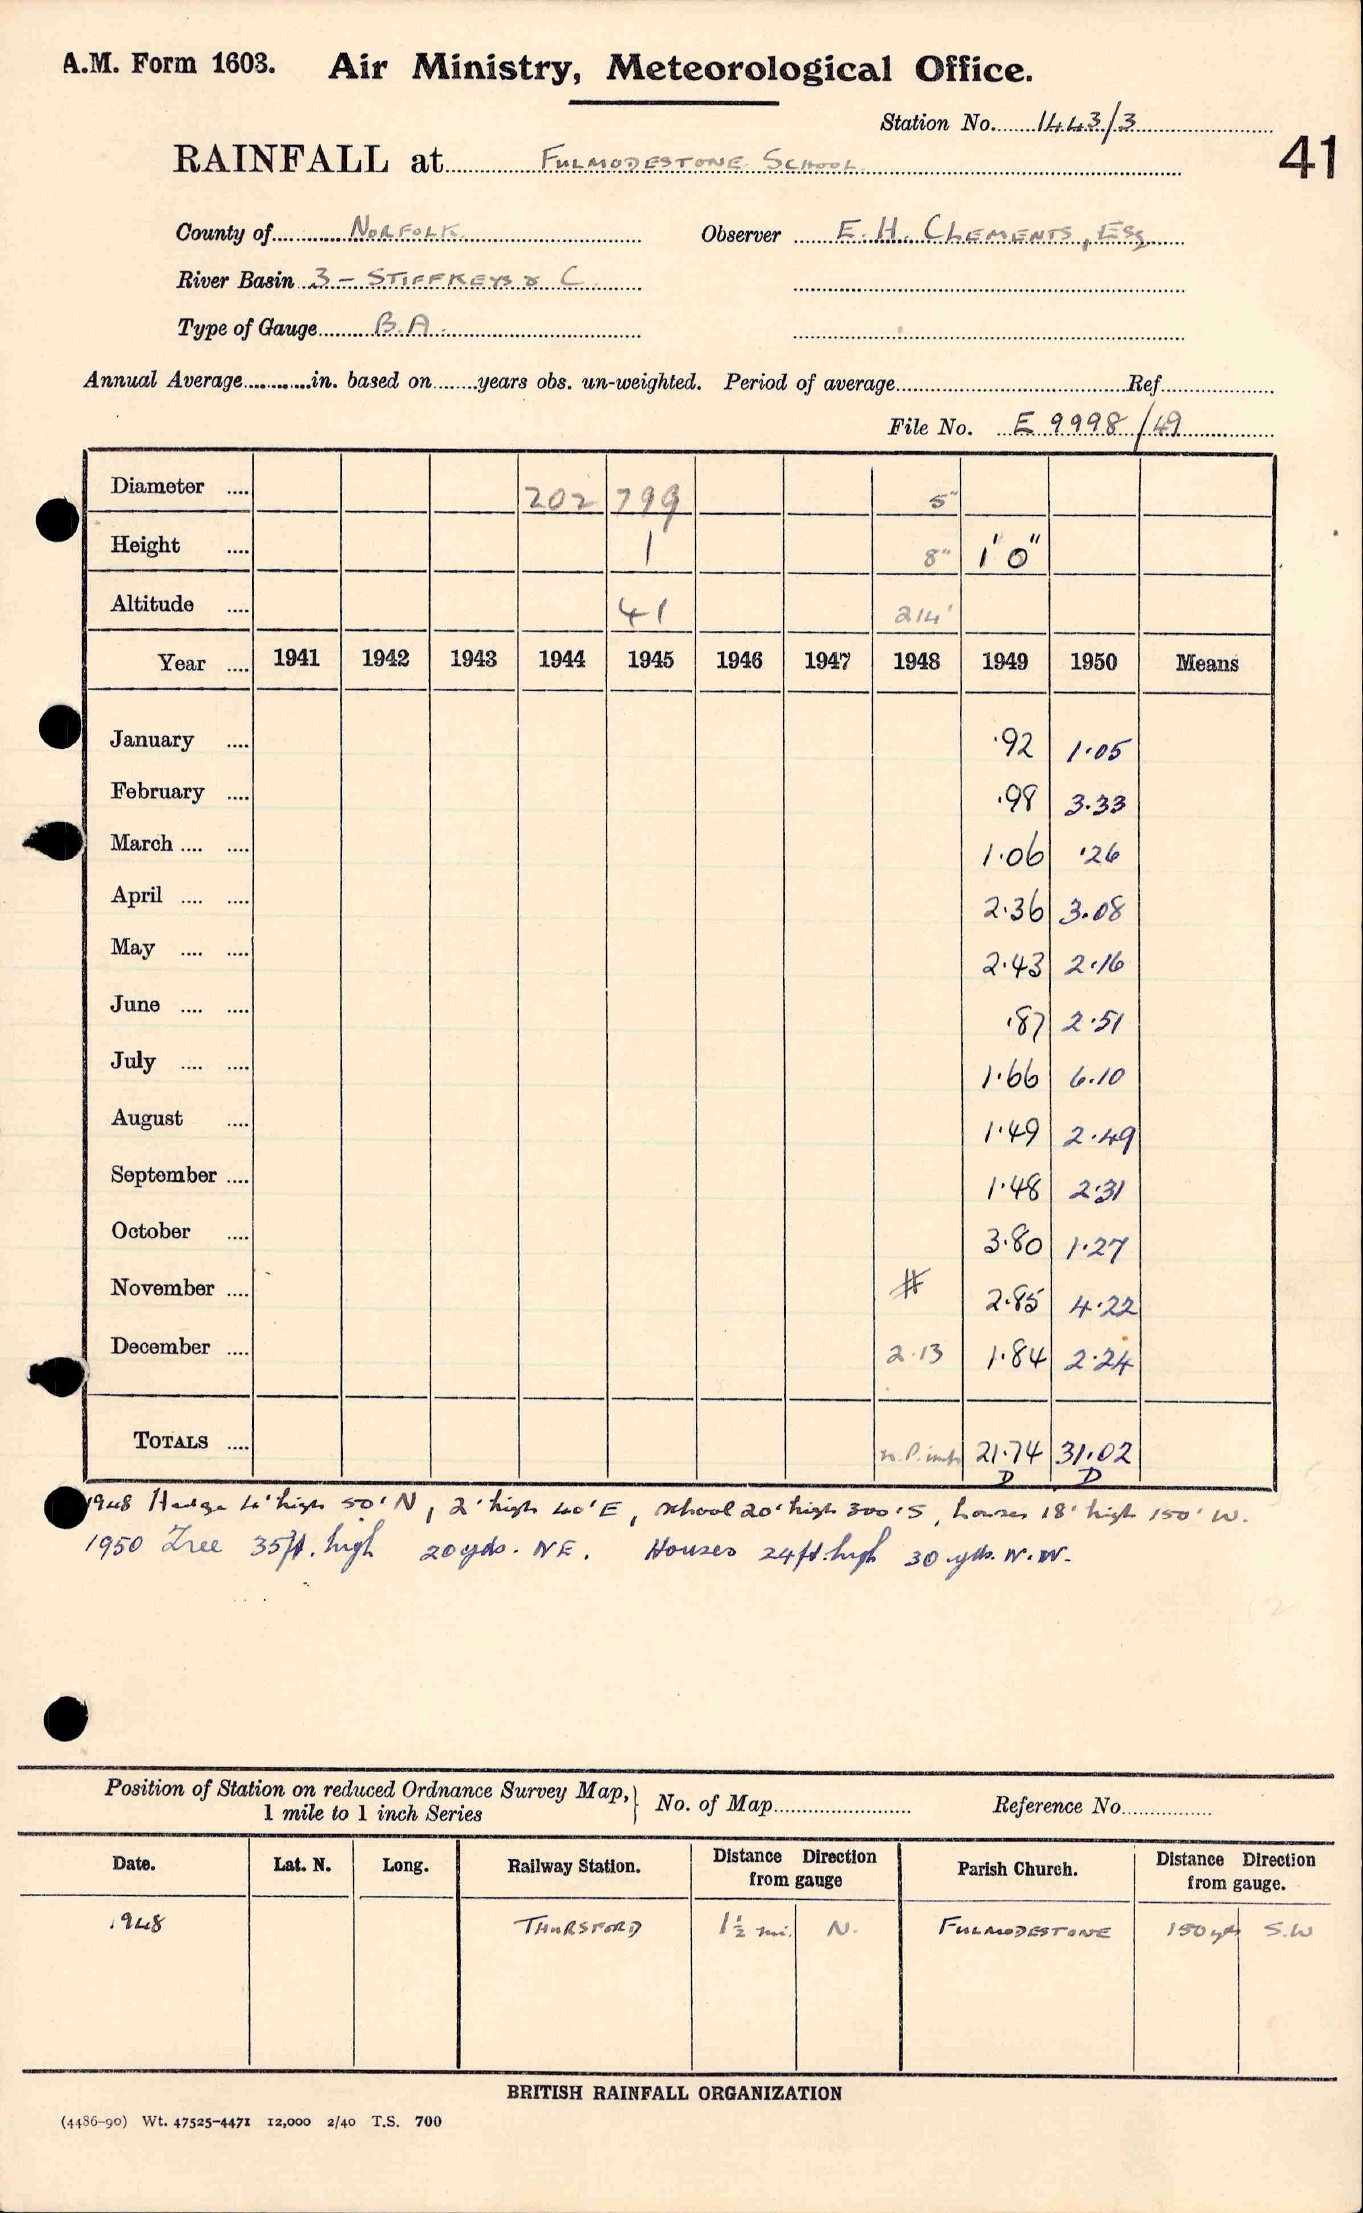 A.M. Form 1603. Air Ministry, Meteorological Office.
Station No. 1443/3
41
RAINFALL at FULMODESTONE SCHOOL
County of NORFOLK Observer E. H. CLEMENTS, Esq
River Basin 3 - STIFFKEY & C
Type of Gauge B.A.
Annual Average in. based on years obs. un-weighted. Period of average Ref
File No. E 9998/49
Diameter 202 799 5"
Height 1 8" 1' 0"
Altitude 41 214'
Year 1941 1942 1943 1944 1945 1946 1947 1948 1949 1950 Means
January ·92 1·05
February ·98 3·33
March 1·06 ·26
April 2·36 3·08
May 2·43 2·16
June ·87 2·51
July 1·66 6·10
August 1·49 2·49
September 1·48 2·31
October 3·80 1·27
November # 2·85 4·22
December 2·13 1·84 2·24
TOTALS 21·74 31·02
D D
1948 Hedge 4' high 50' N, 2' high 40' E, school 20' high 300' S, houses 18' high 150' W.
1950 Tree 35ft. high 20yds. NE. Houses 24ft. high 30 yds. N.W.
Position of Station on reduced Ordnance Survey Map, 1 mile to 1 inch Series No. of Map Reference No.
Date. Lat. N. Long. Railway Station. Distance Direction from gauge Parish Church. Distance Direction from gauge.
1948 THURSFORD 1½ mi. N. FULMODESTONE 150 yds S.W
BRITISH RAINFALL ORGANIZATION
(4486-90) Wt. 47525-4471 12,000 2/40 T.S. 700